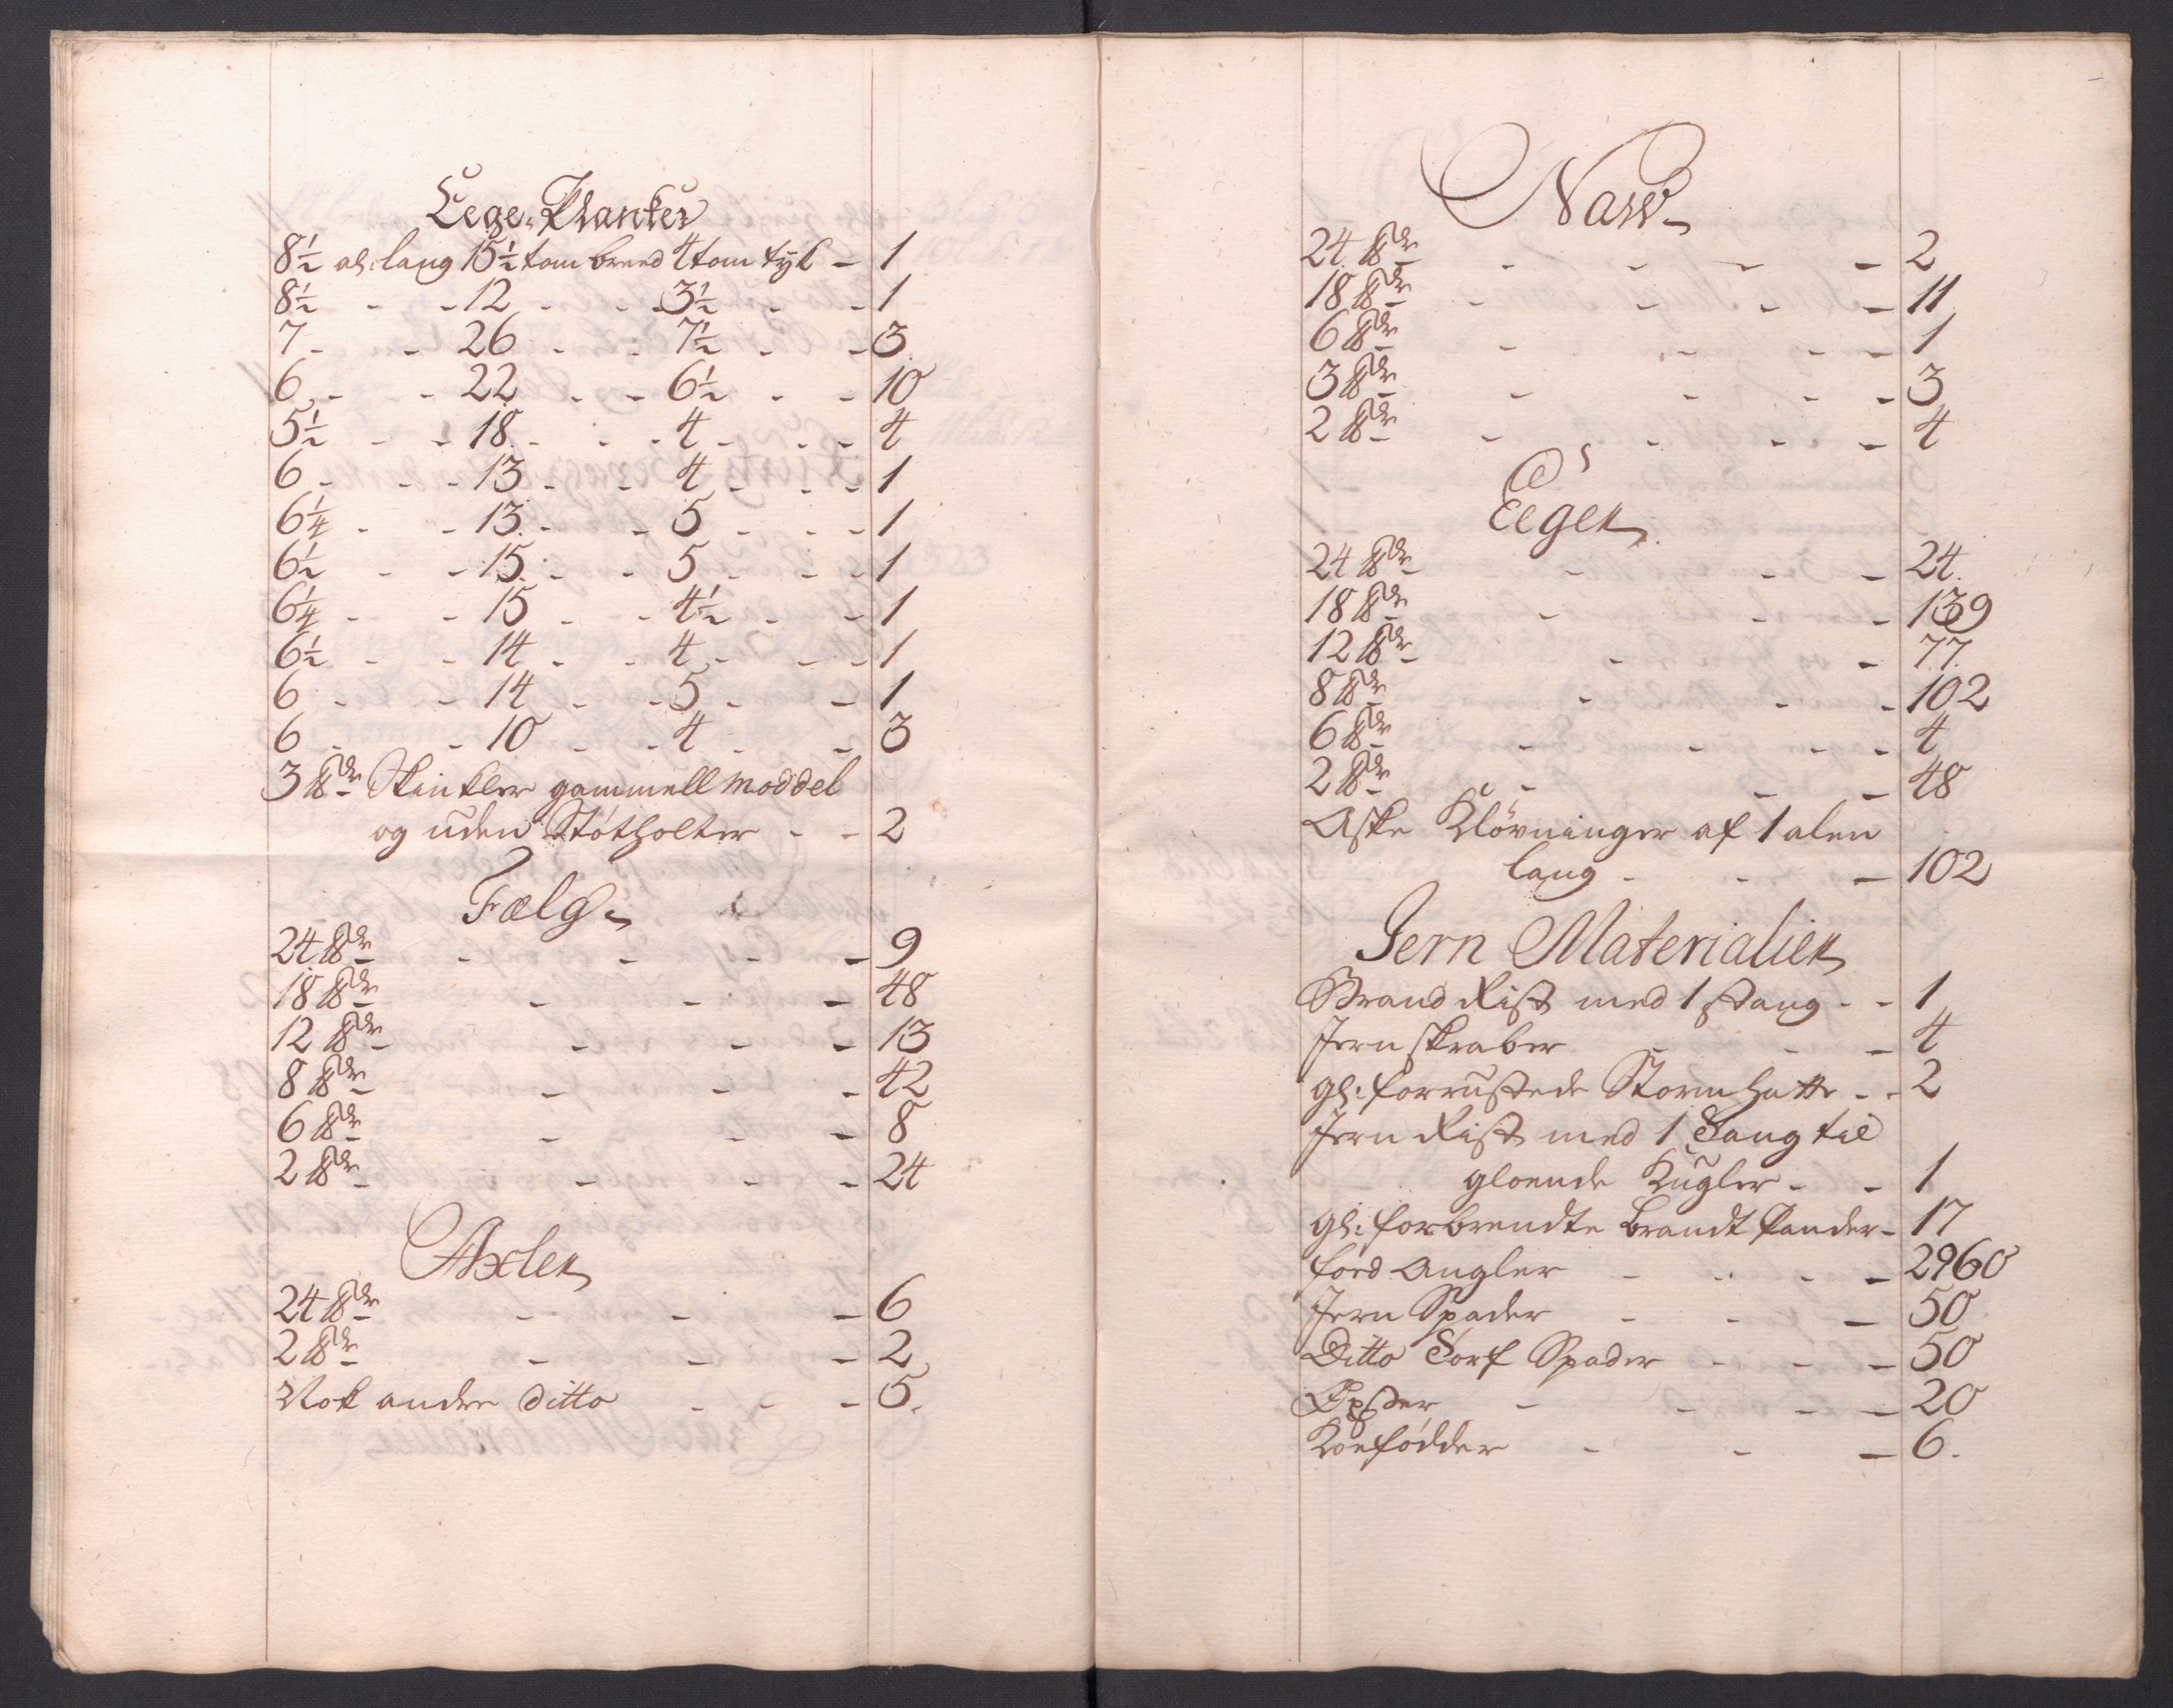 Eege Planker
8½ al: lang 15½ tom breed 4 tom tyk - 1
8½ - - 12 - - 3½ - - 1
7 - - 26 - - 7½ - - 3
6 - - 22 - - 6½ - - 10
5½ - - 18 - - 4 - - 4
6 - - 13 - - 4 - - 1
6¼ - - 13 - - 5 - - 1
6½ - - 15 - - 5 - - 1
6¼ - - 15 - - 4½ - - 1
6½ - - 14 - - 4 - - 1
6 - - 14 - - 5 - - 1
6 - - 10 - - 4 - - 3
3 ℔dr Skinkler gammell moddel
og uden Støtholter - - 2
Fælg
24 ℔dr - - - - 9
18 ℔dr - - - 48
12 ℔dr - - - 13
8 ℔dr - - - 42
6 ℔dr - - - 8
2 ℔dr - - - 24
Axler
24 ℔dr - - - 6
2 ℔dr - - - 2
Nok andre ditto - - - 5.
Naw
24 ℔dr - - - - 2
18 ℔dr - - - - 11
6 ℔dr - - - - 1
3 ℔dr - - - - 3
2 ℔dr - - - - 4
Eeger
24 ℔dr - - - 24.
18 ℔dr - - - 139
12 ℔dr - - 77.
8 ℔dr - - - 102
6 ℔dr - - - - 4
2 ℔dr - - - 48
Aske Kløvninger af 1 alen
lang - - - 102
Jern Materialier
Brand Rist med 1 Stang - - 1
Jern skraber - - - 4
gl: forrustede Storm Hatte - - 2
Jern Rist med 1 Tang til
gloende Kugler - - 1
gl: forbrendte Brandt Pander - 17
ford Angler - - - - 2960
Jern Spader - - - 50
Ditto Torf Spader - - - 50
Øxer - - - - 20
Koefødder - - - 6.